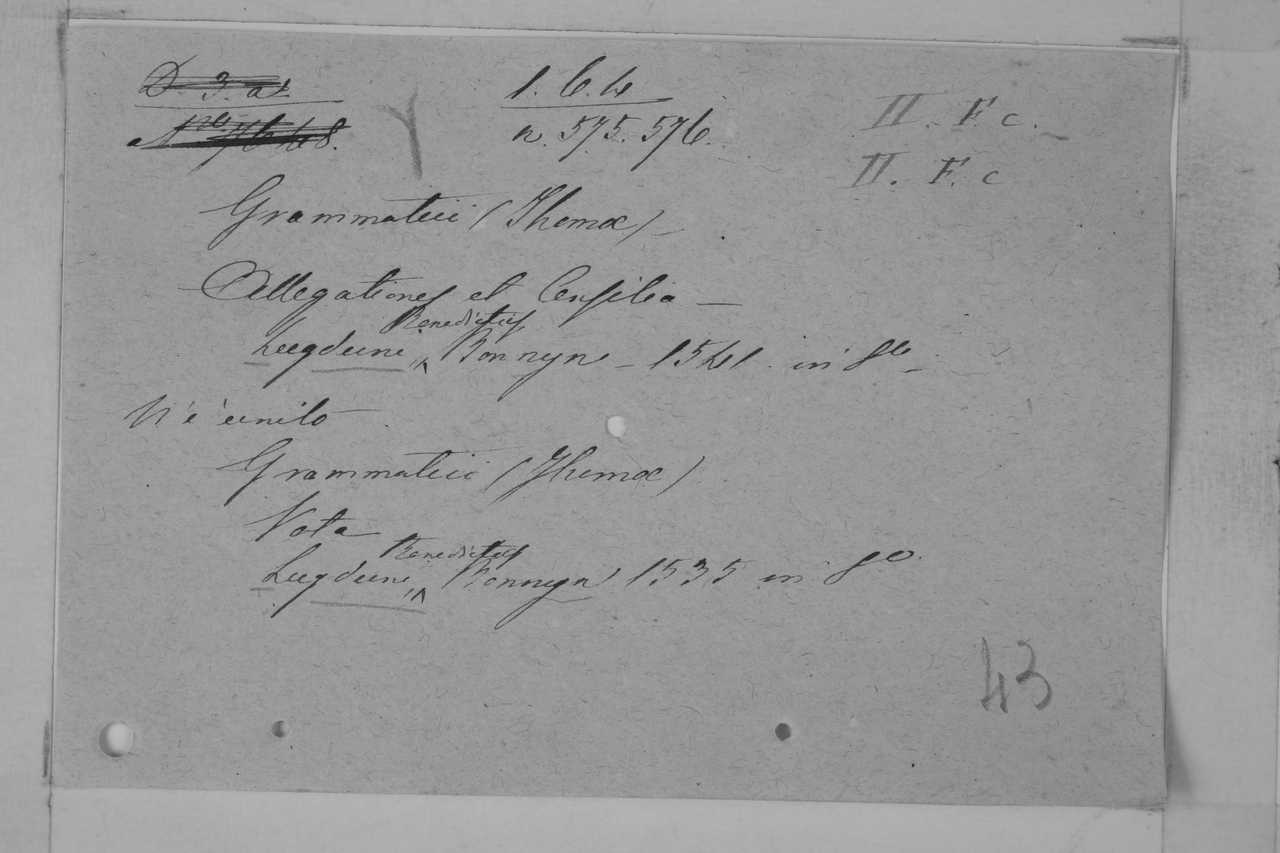 D. 3. a2
1. 6. 4
II. F. c.
n. 575. 576.
II. F. c
Grammatici (Thomæ) -
Allegationes et Consilia -
Benedictus
Lugduni, ^ Bonnyn - 1541. in 8vo -
N'è unito -
Grammatici (Thomæ)
Vota
Benedictus
Lugduni, ^ Bonnyn 1535 in 8o.
43